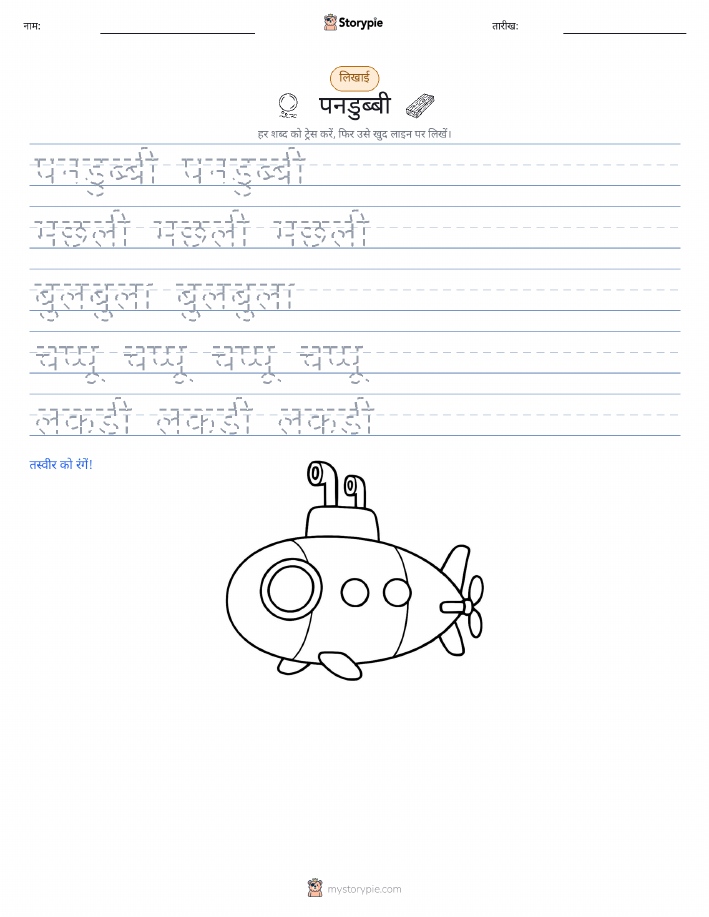 नाम: Storypie तारीख:
लिखाई
पनडुब्बी
हर शब्द को ट्रेस करें, फिर उसे खुद लाइन पर लिखें।
पनडुब्बी पनडुब्बी
मछली मछली मछली
बुलबुला बुलबुला
चप्पू चप्पू चप्पू चप्पू
लकड़ी लकड़ी लकड़ी
तस्वीर को रंगें!
mystorypie.com